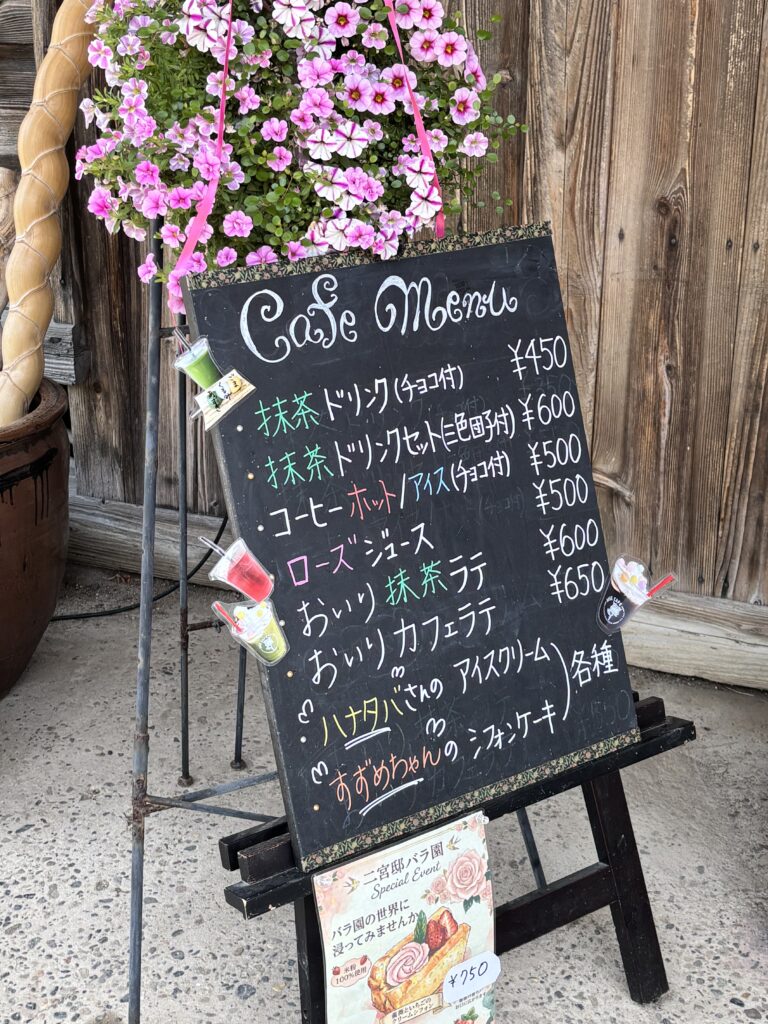 Cafe Menu
抹茶ドリンク(チョコ付) ¥450
抹茶ドリンクセット(三色団子付) ¥600
コーヒー ホット/アイス(チョコ付) ¥500
ローズ ジュース ¥500
おいり 抹茶ラテ ¥600
おいりカフェラテ ¥650
ハナタバさんの アイスクリーム
すずめちゃんの シフォンケーキ
各種
二宮邸バラ園
Special Event
バラ園の世界に
浸ってみませんか
米粉
100%使用
薔薇といちごの
クリームシフォン
¥750